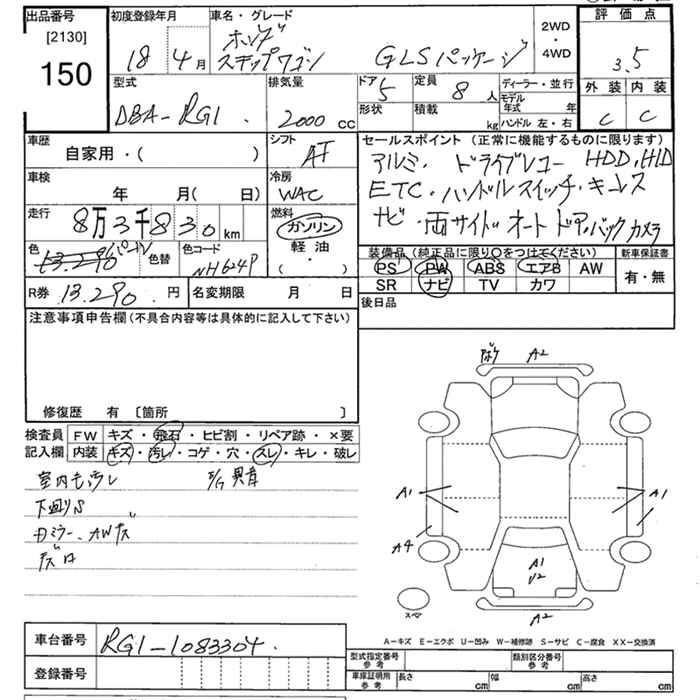 出品番号 初度登録年月 車名・グレード 評価点
[2130]
150
18年 4月 ホンダ ステップワゴン GLSパッケージ 2WD・4WD 3.5
型式 排気量 ドア 定員 ディーラー・並行 外装 内装
DBA-RG1 2000cc 5 8人 モデル年式 年 C C
形状 積載 kg ハンドル 左・右
車歴 シフト セールスポイント (正常に機能するものに限ります)
自家用・( ) AT アルミ・ドライブレコー HDD,HID
車検 冷房 ETC・ハンドルスイッチ・キーレス
年 月(日) WAC ナビ・両サイドオートドア,バックカメラ
走行 燃料
8万3千830km ガソリン
軽油
・( )
色 パール 色替 色コード NH624P
装備品(純正品に限り○をつけてください) 新車保証書
PS PW ABS エアB AW 有・無
SR ナビ TV カワ
R券 13.290円 名変期限 月 日
後日品
注意事項申告欄(不具合内容等は具体的に記入して下さい)
修復歴 有 〔箇所 〕
検査員記入欄 FW キズ・飛石・ヒビ割・リペア跡・×要
内装 キズ・汚レ・コゲ・穴・スレ・キレ・破レ
室内キズ汚レ 異音
下廻りS
ミラー、AWキズ
A2
A1 A1
A4
A1
U2
A2
スペア
A-キズ E-エクボ U-凹み W-補修跡 S-サビ C-腐食 XX-交換済
車台番号 RG1-1083304
登録番号
型式指定番号 参考 類別区分番号 参考
車庫証明用 参考 長さ cm 幅 cm 高さ cm